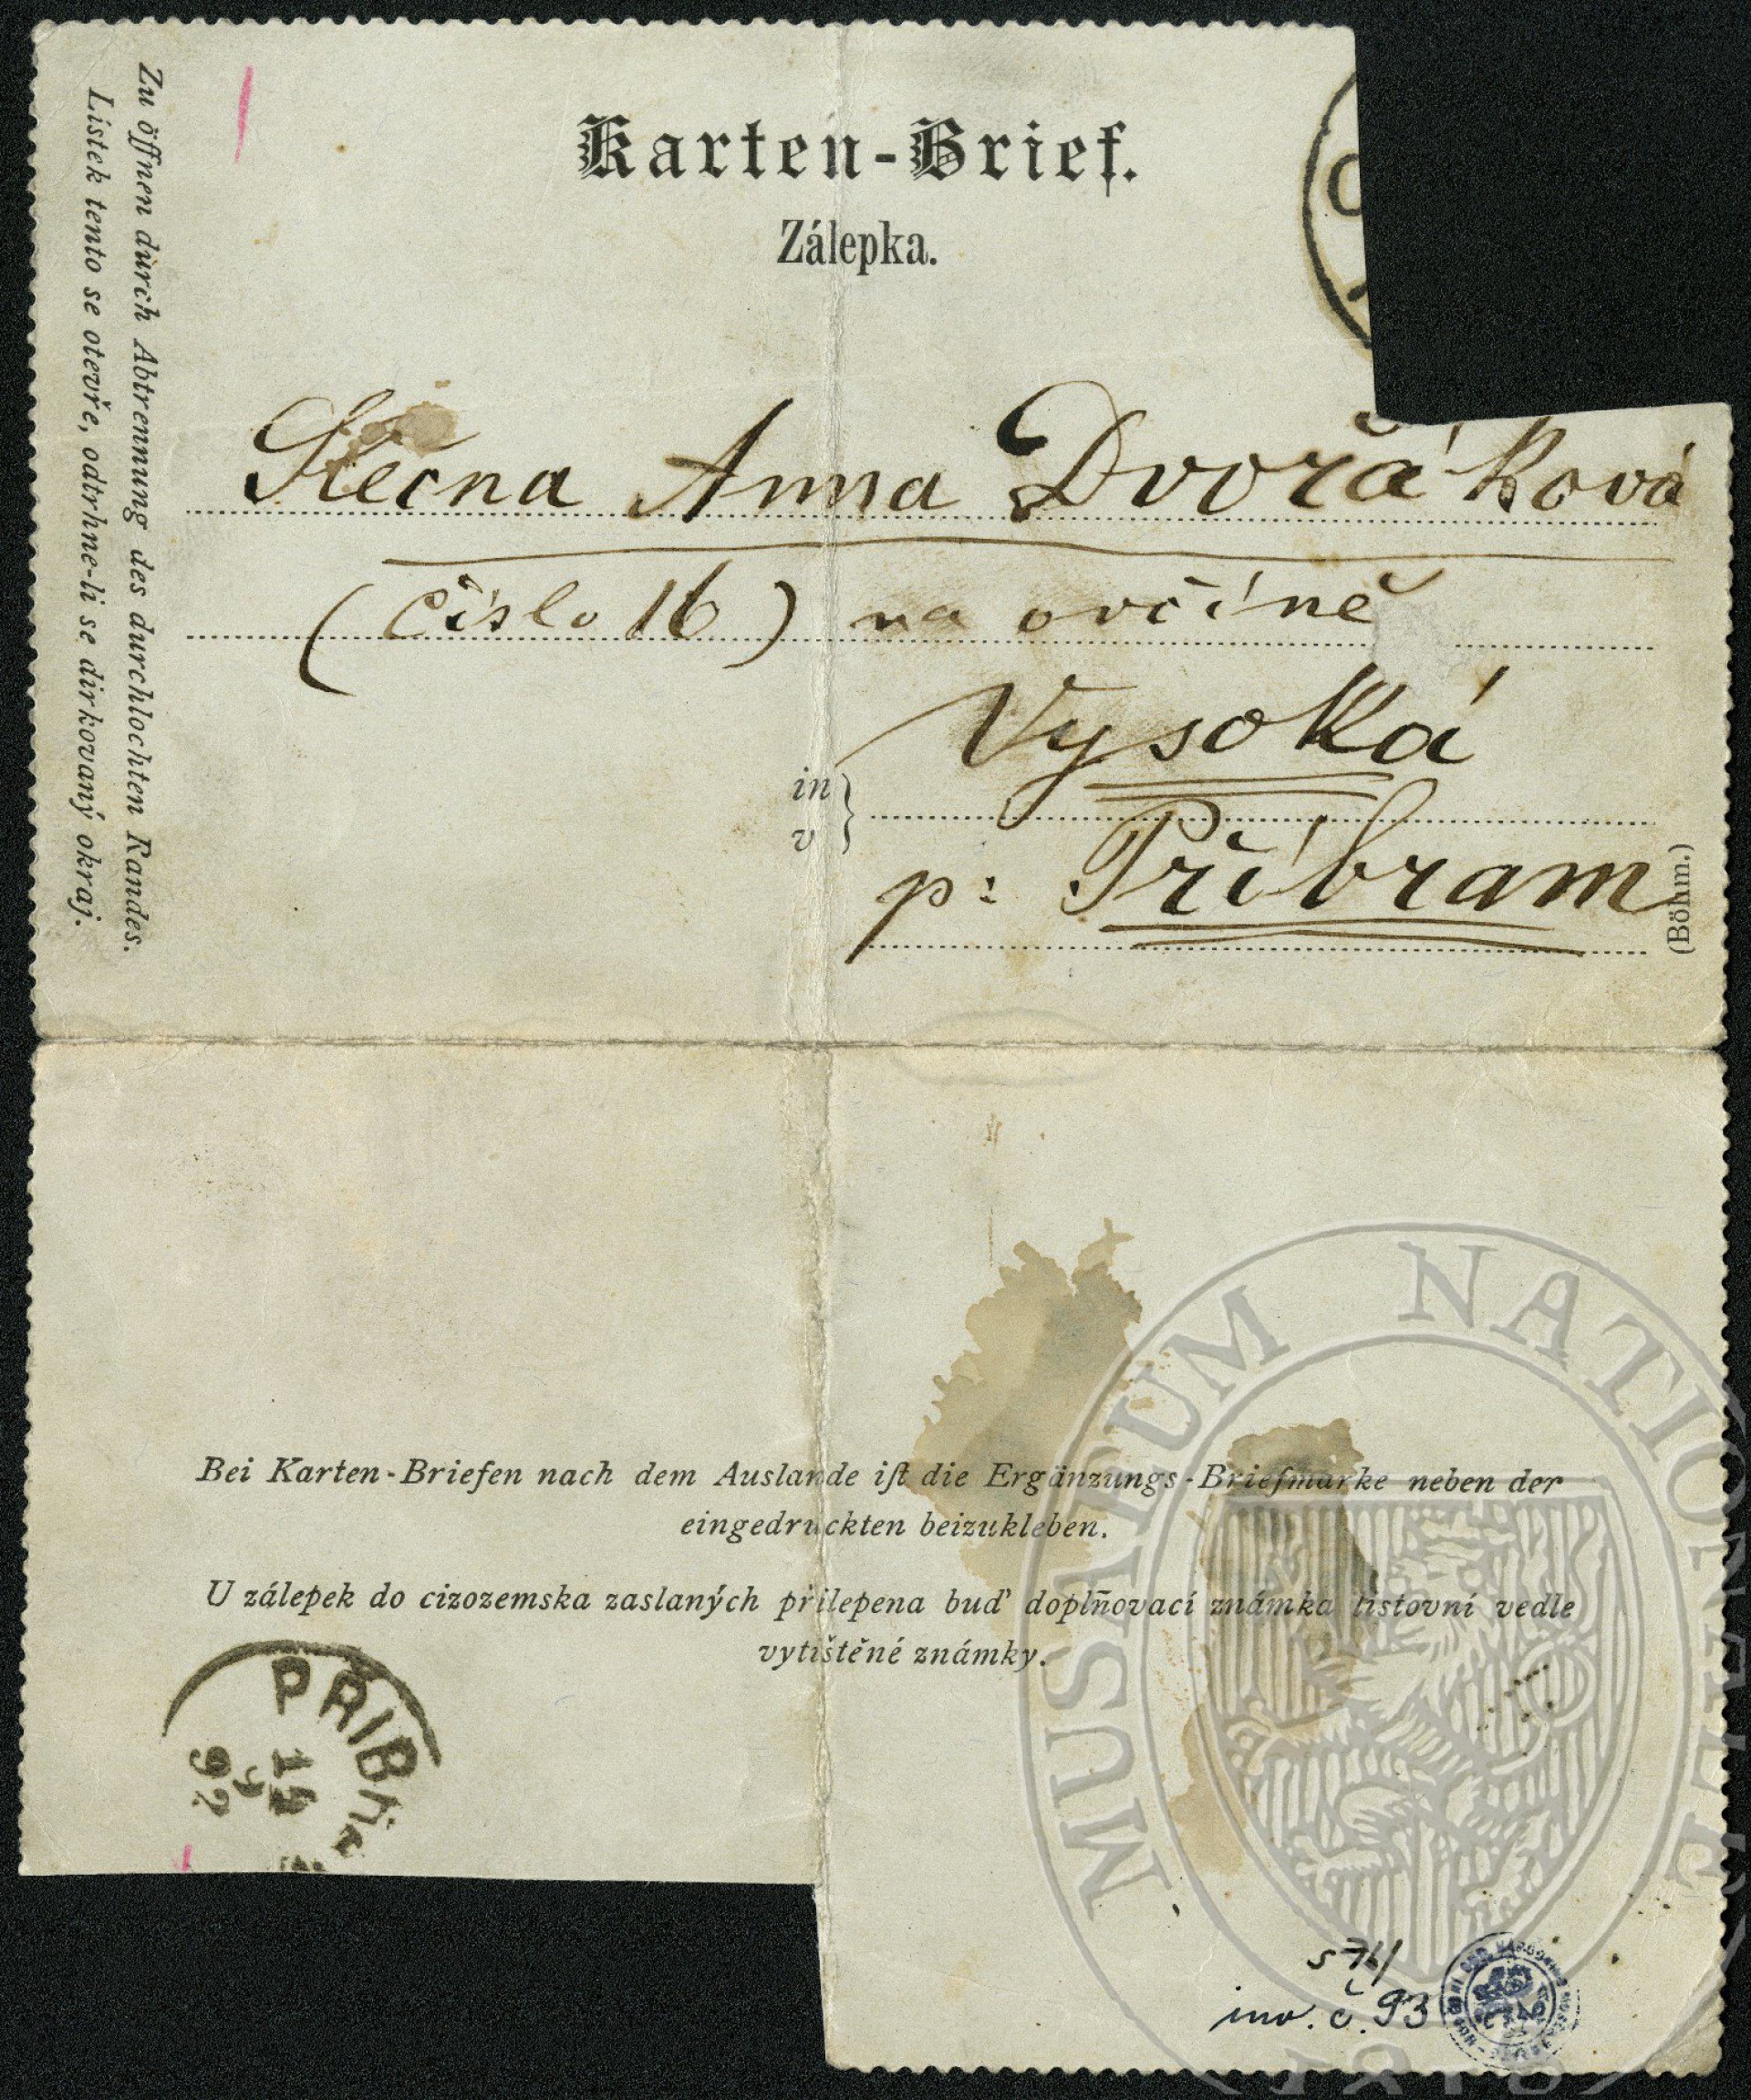 Karten-Brief.
Zálepka.
Zu öffnen durch Abtrennung des durchlochten Randes.
Lístek tento se otevře, odtrhne-li se dirkovaný okraj.
Slečna Anna Dvořáková
(číslo 16) na ovčíně
Vysoká
in
v
p: Příbram
(Böhm.)
Bei Karten-Briefen nach dem Auslande iſt die Ergänzungs-Briefmarke neben der
eingedruckten beizukleben.
U zálepek do cizozemska zaslaných přilepena buď doplňovací známka listovní vedle
vytištěné známky.
PŘIBR
14
9
92
MUSAEUM NATIONALE
1818
S 76/
inv. č. 93